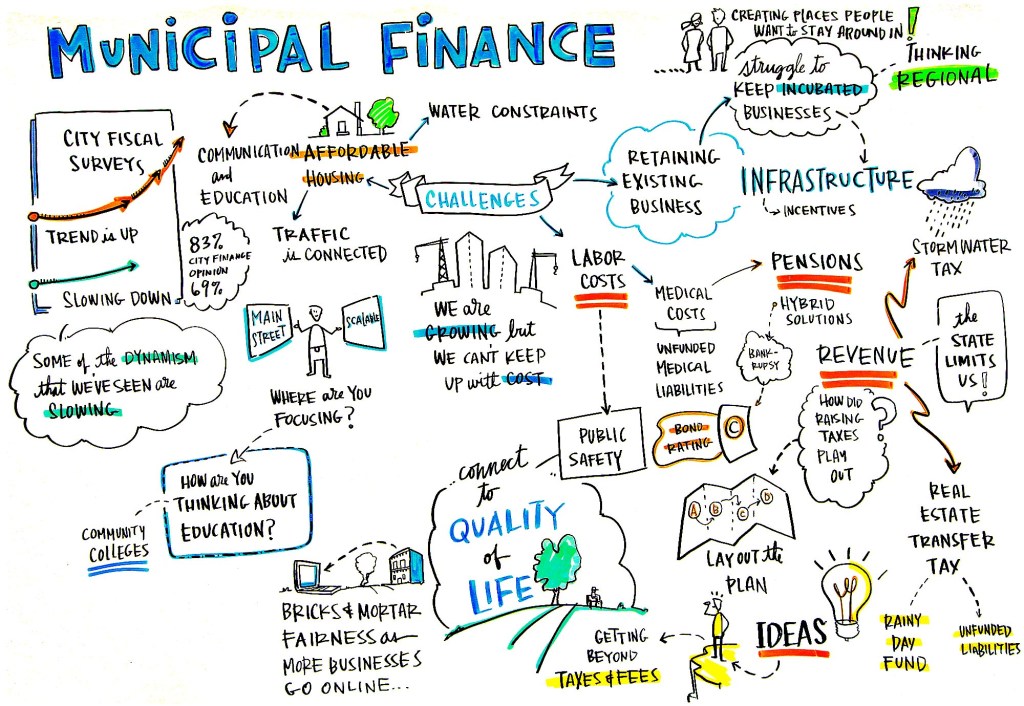 MUNICIPAL FINANCE
CREATING PLACES PEOPLE
WANT to STAY AROUND IN!
THINKING
REGIONAL
struggle to
KEEP INCUBATED
BUSINESSES
CITY FISCAL
SURVEYS
TREND is UP
SLOWING DOWN
83%
CITY FINANCE
OPINION
69%
COMMUNICATION
and
EDUCATION
AFFORDABLE
HOUSING
WATER CONSTRAINTS
TRAFFIC
is CONNECTED
CHALLENGES
RETAINING
EXISTING
BUSINESS
INFRASTRUCTURE
INCENTIVES
STORMWATER
TAX
SOME of the DYNAMISM
that WE'VE SEEN are
SLOWING
MAIN
STREET
SCALABLE
WHERE are YOU
FOCUSING?
WE are
GROWING but
WE CAN'T KEEP
UP with COST
LABOR
COSTS
MEDICAL
COSTS
UNFUNDED
MEDICAL
LIABILITIES
PENSIONS
HYBRID
SOLUTIONS
BANK-
RUPSY
BOND
RATING
C
REVENUE
the
STATE
LIMITS
US!
HOW DID
RAISING
TAXES
PLAY
OUT
?
HOW are YOU
THINKING ABOUT
EDUCATION?
COMMUNITY
COLLEGES
PUBLIC
SAFETY
connect
to
QUALITY
of
LIFE
A B C D
LAY OUT the
PLAN
REAL
ESTATE
TRANSFER
TAX
RAINY
DAY
FUND
UNFUNDED
LIABILITIES
BRICKS & MORTAR
FAIRNESS as
MORE BUSINESSES
GO ONLINE...
GETTING
BEYOND
TAXES & FEES
?
IDEAS